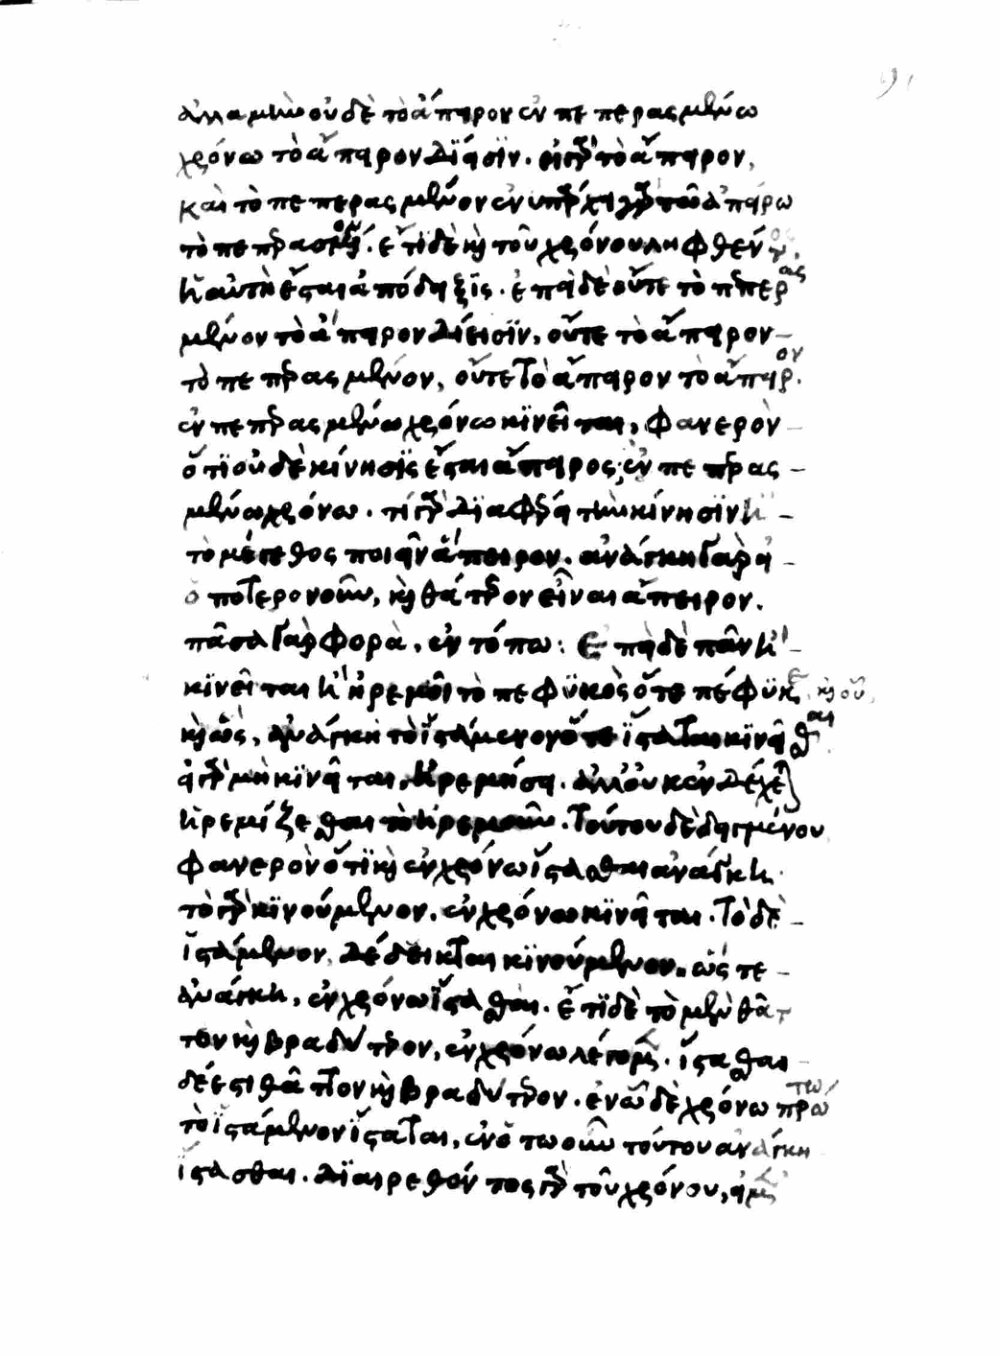 ἀλλὰ μὴν οὐδὲ τὸ ἄπειρον ἐν πεπερασμένω
χρόνω τὸ ἄπειρον δίεισιν. εἰ γὰρ τὸ ἄπειρον,
καὶ τὸ πεπερασμένον ἐνυπάρχει γὰρ τῶ ἀπείρω
τὸ πεπερασμένον. ἔτι δὲ καὶ τοῦ χρόνου ληφθέντος,
ἡ αὐτὴ ἔσται ἀπόδειξις. ἐπεὶ δὲ οὔτε τὸ πεπερασ
μένον τὸ ἄπειρον δίεισιν, οὔτε τὸ ἄπειρον
τὸ πεπερασμένον, οὔτε τὸ ἄπειρον τὸ ἄπειρον.
ἐν πεπερασμένω χρόνω κινεῖται, φανερὸν
ὅτι οὐδὲ κίνησις ἔσται ἄπειρος ἐν πεπερασ
μένω χρόνω. τί γὰρ διαφέρει τὴν κίνησιν ἢ
τὸ μέγεθος ποιεῖν ἄπειρον. ἀνάγκη γὰρ εἰ
ὁποτερονοῦν, καὶ θάτερον εἶναι ἄπειρον.
πᾶσα γὰρ φορὰ, ἐν τόπω: Ἐπεὶ δὲ πᾶν ἢ
κινεῖται ἢ ἠρεμεῖ τὸ πεφυκὸς ὅτε πέφυκε καὶ οὗ
καὶ ὡς, ἀνάγκη τὸ ἱστάμενον ὅτε ἵσταται κινεῖσθαι
εἰ γὰρ μὴ κινεῖται, ἠρεμήσει. ἀλλ' οὐκ ἐνδέχεται
ἠρεμίζεσθαι τὸ ἠρεμοῦν. τούτου δὲ δεδειγμένου
φανερὸν ὅτι καὶ ἐν χρόνω ἵστασθαι ἀνάγκη.
τὸ γὰρ κινούμενον, ἐν χρόνω κινεῖται. τὸ δὲ
ἱστάμενον, δέδεικται κινούμενον. ὥστε
ἀνάγκη, ἐν χρόνω ἵστασθαι. ἔτι δὲ τὸ μὲν θᾶτ
τον καὶ βραδύτερον, ἐν χρόνω λέγομεν. ἵστασθαι
δέ ἐστι θᾶττον καὶ βραδύτερον. ἐν ὧ δὲ χρόνω πρώτω
τὸ ἱστάμενον ἵσταται, ἐν ὁτωοῦν τούτου ἀνάγκη
ἵστασθαι. διαιρεθέντος γὰρ τοῦ χρόνου, εἰ μὲν